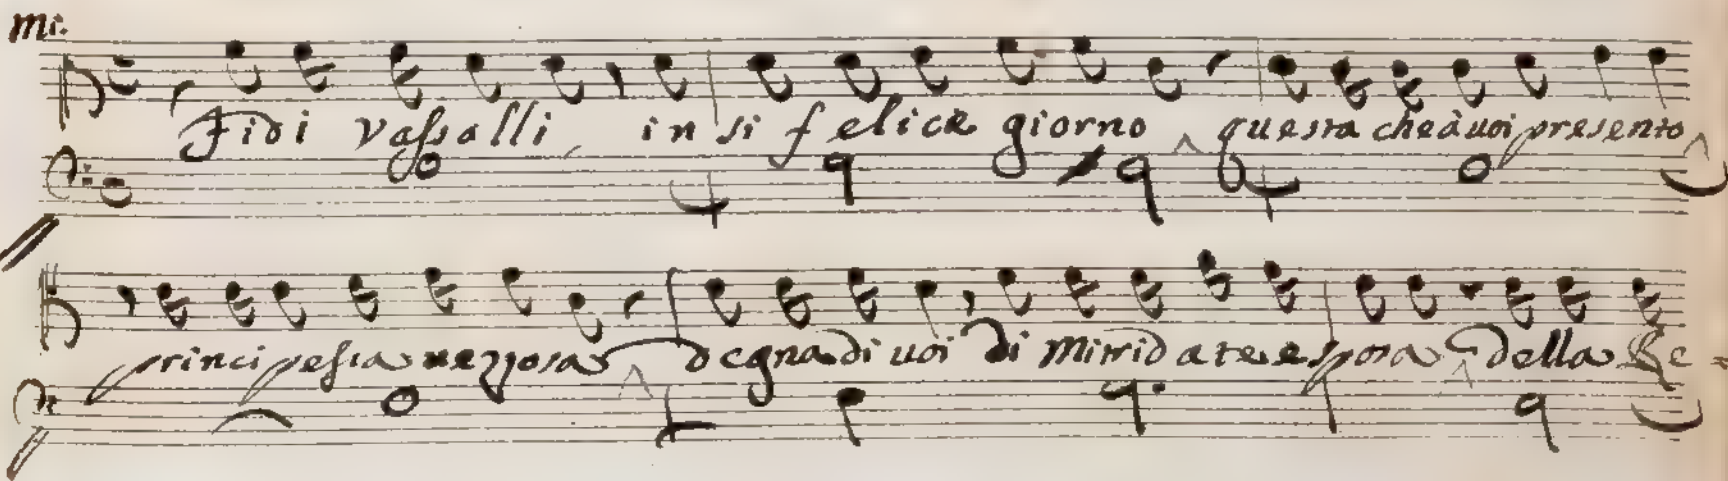 Mi.
Fidi vassalli in si felice giorno questa che à uoi presento
principessa uezzosa degna di uoi di Mitridate esposa della Re=